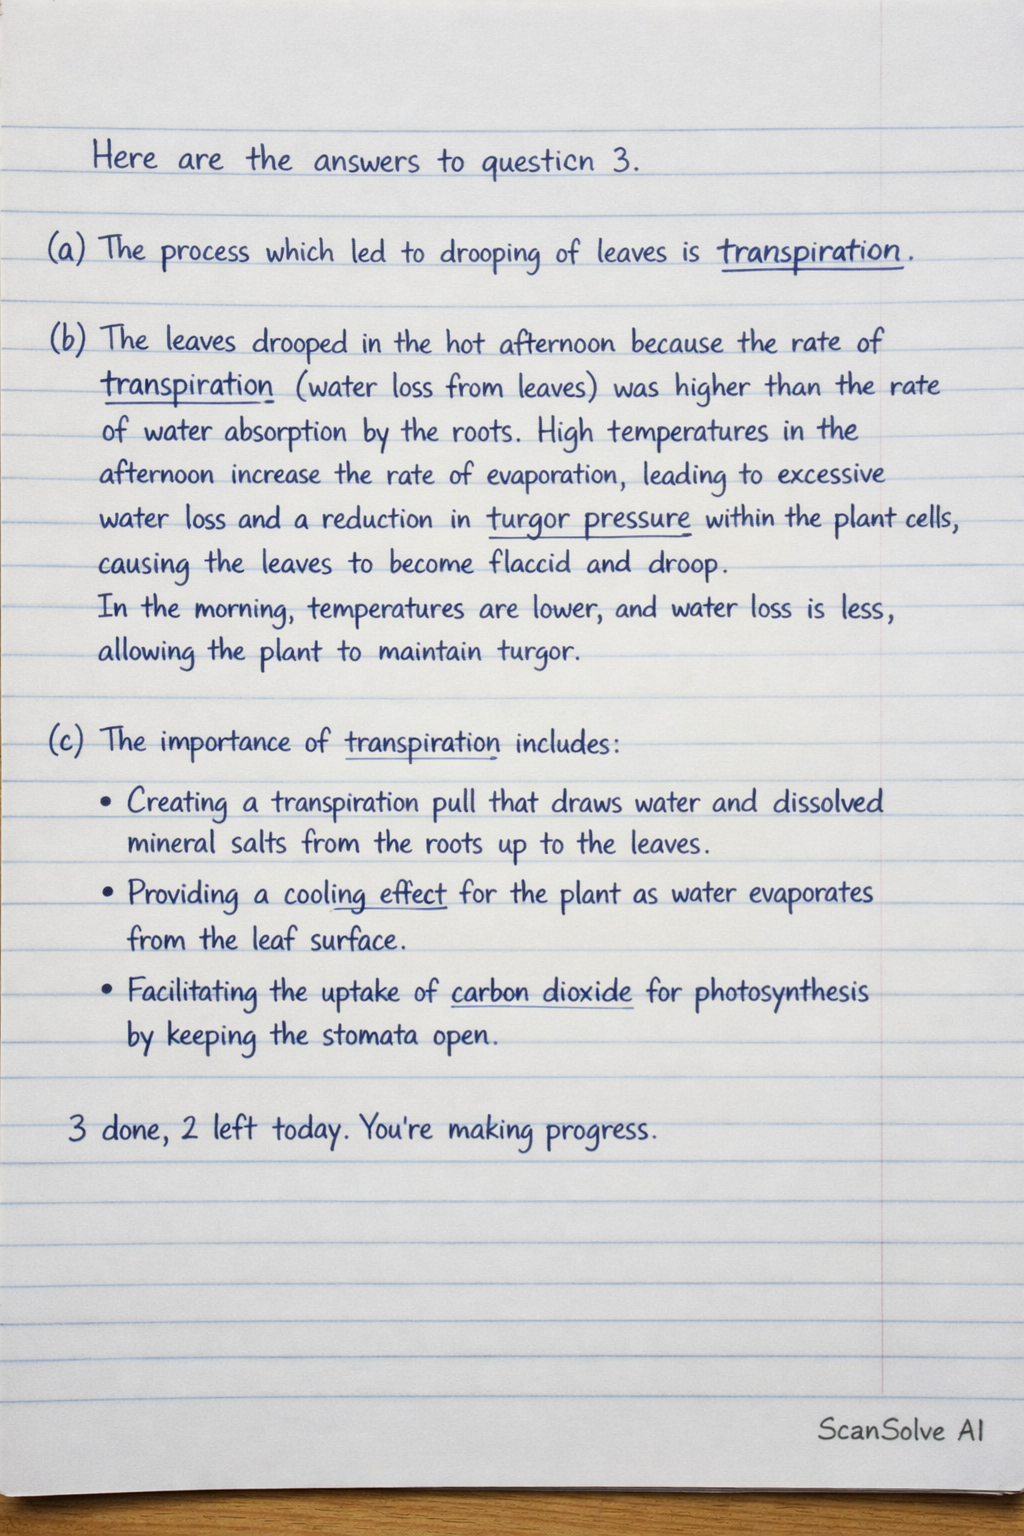 Here are the answers to question 3.
(a) The process which led to drooping of leaves is transpiration.
(b) The leaves drooped in the hot afternoon because the rate of
transpiration (water loss from leaves) was higher than the rate
of water absorption by the roots. High temperatures in the
afternoon increase the rate of evaporation, leading to excessive
water loss and a reduction in turgor pressure within the plant cells,
causing the leaves to become flaccid and droop.
In the morning, temperatures are lower, and water loss is less,
allowing the plant to maintain turgor.
(c) The importance of transpiration includes:
• Creating a transpiration pull that draws water and dissolved
mineral salts from the roots up to the leaves.
• Providing a cooling effect for the plant as water evaporates
from the leaf surface.
• Facilitating the uptake of carbon dioxide for photosynthesis
by keeping the stomata open.
3 done, 2 left today. You're making progress.
ScanSolve AI